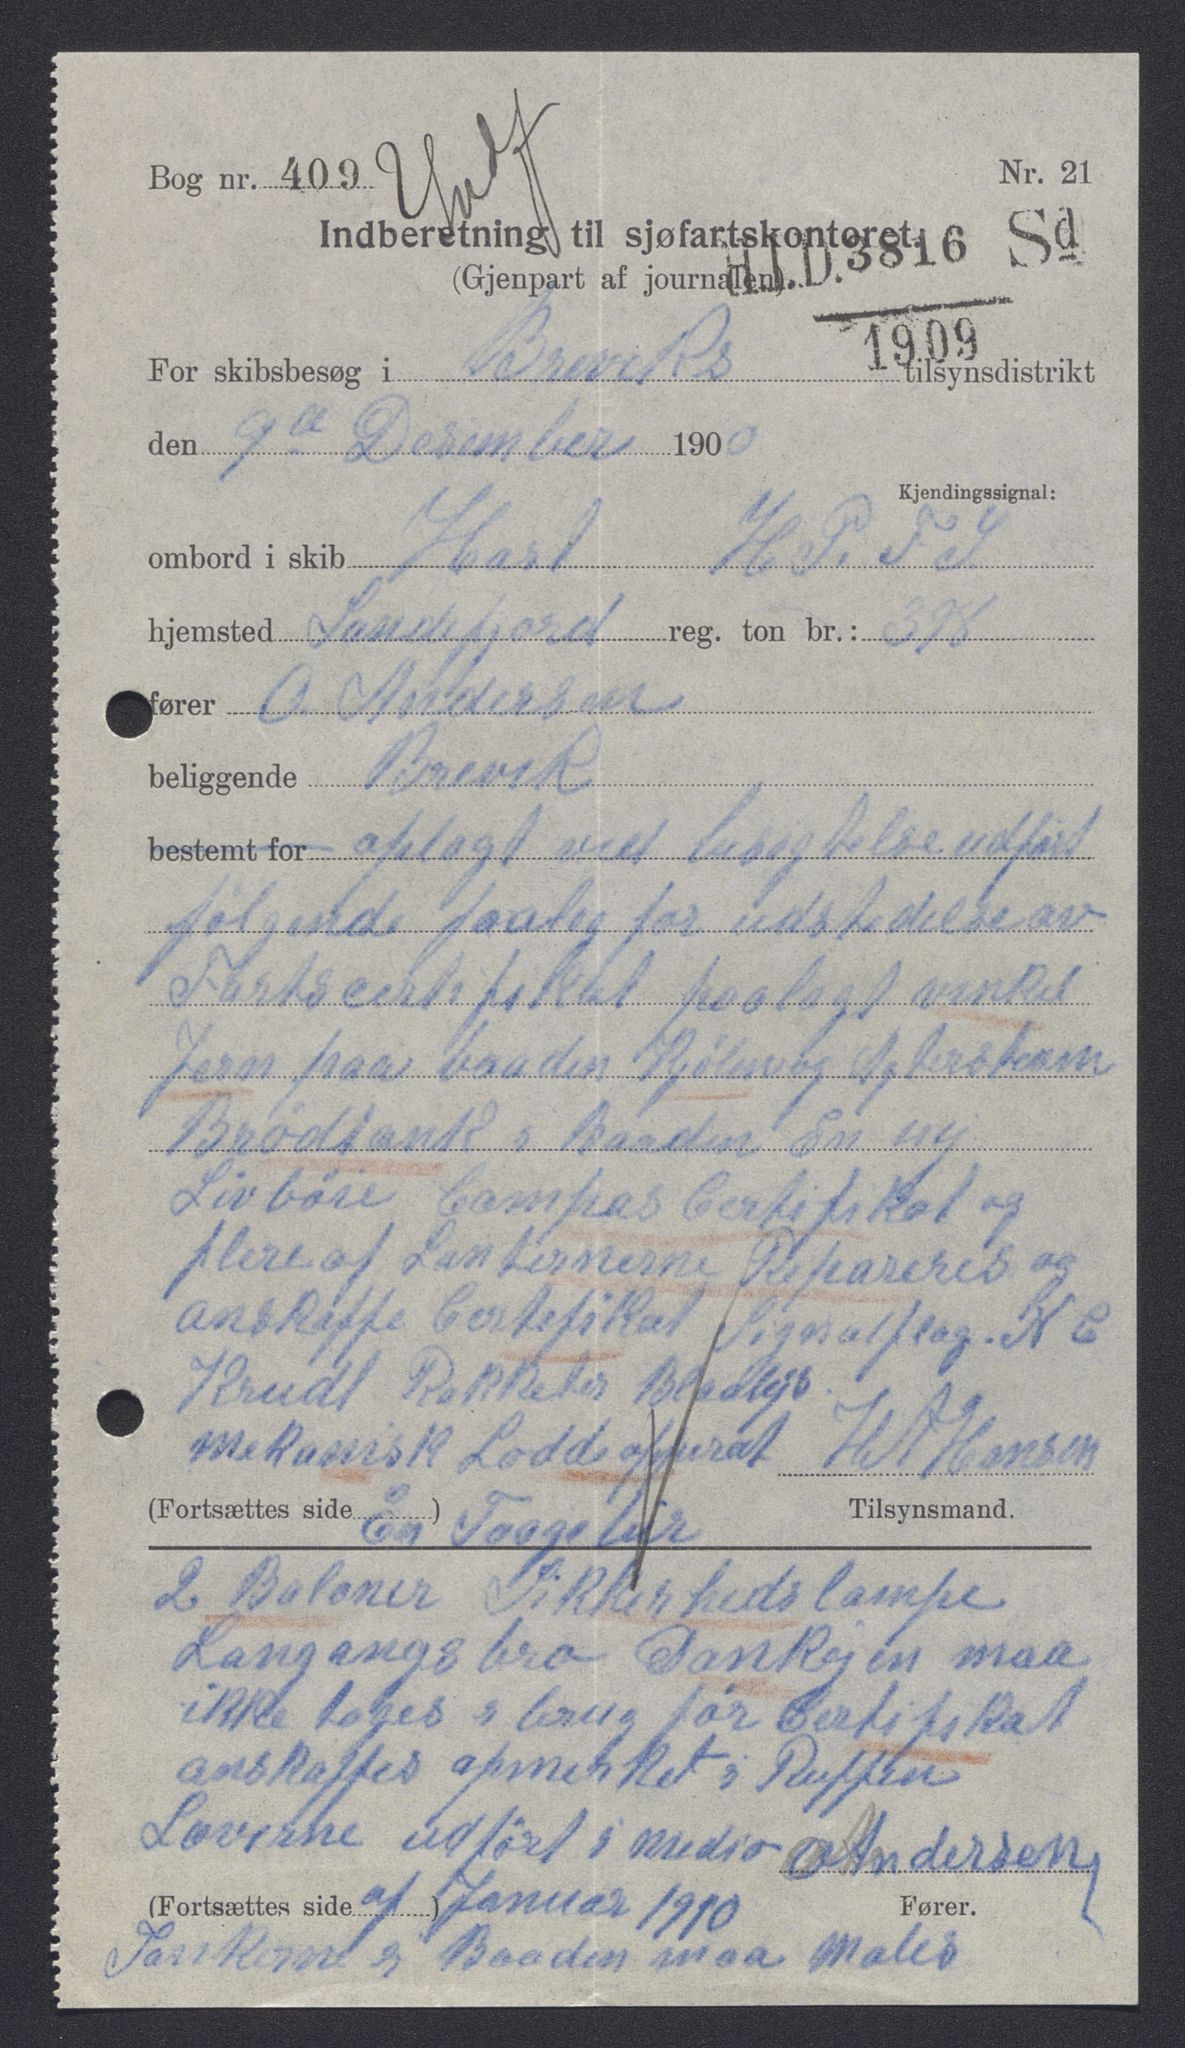 Bog nr. 409 Nr. 21
Indberetning til sjøfartskontoret.
(Gjenpart af journalen).
H.J.D. 3816 Sd
1909
For skibsbesøg i Breviks tilsynsdistrikt
den 9de Desember 190
Kjendingssignal:
ombord i skib H P. F S.
hjemsted Sandefjord reg. ton br.: 398
fører O. Andersen
beliggende Brevik
bestemt for oplagt ved besigtelse udført
følgende for udstedelse av
Fartscertifikat paalagt vinkel
Jern paa baaden Kjølen og Agterstevn
Brødtank i Baaden En ny
Livbøie Compas Certifikat og
flere af Lanternerne Repareres og
anskaffe Certefikat Signalflag. N C
Krudt Rakketer Blaalys.
mekanisk Loddeapparat H A Hansen
(Fortsættes side ) Tilsynsmand.
En Taagelur
2 Baloner Sikkerhedslampe
Langangsbro maa
ikke tages i brug før Certifikat
anskaffes opmerket i Ruffen
Loverne udført i medio O Andersen
(Fortsættes side ) Fører.
af Januar 1910
Tankerne i Baaden maa Males